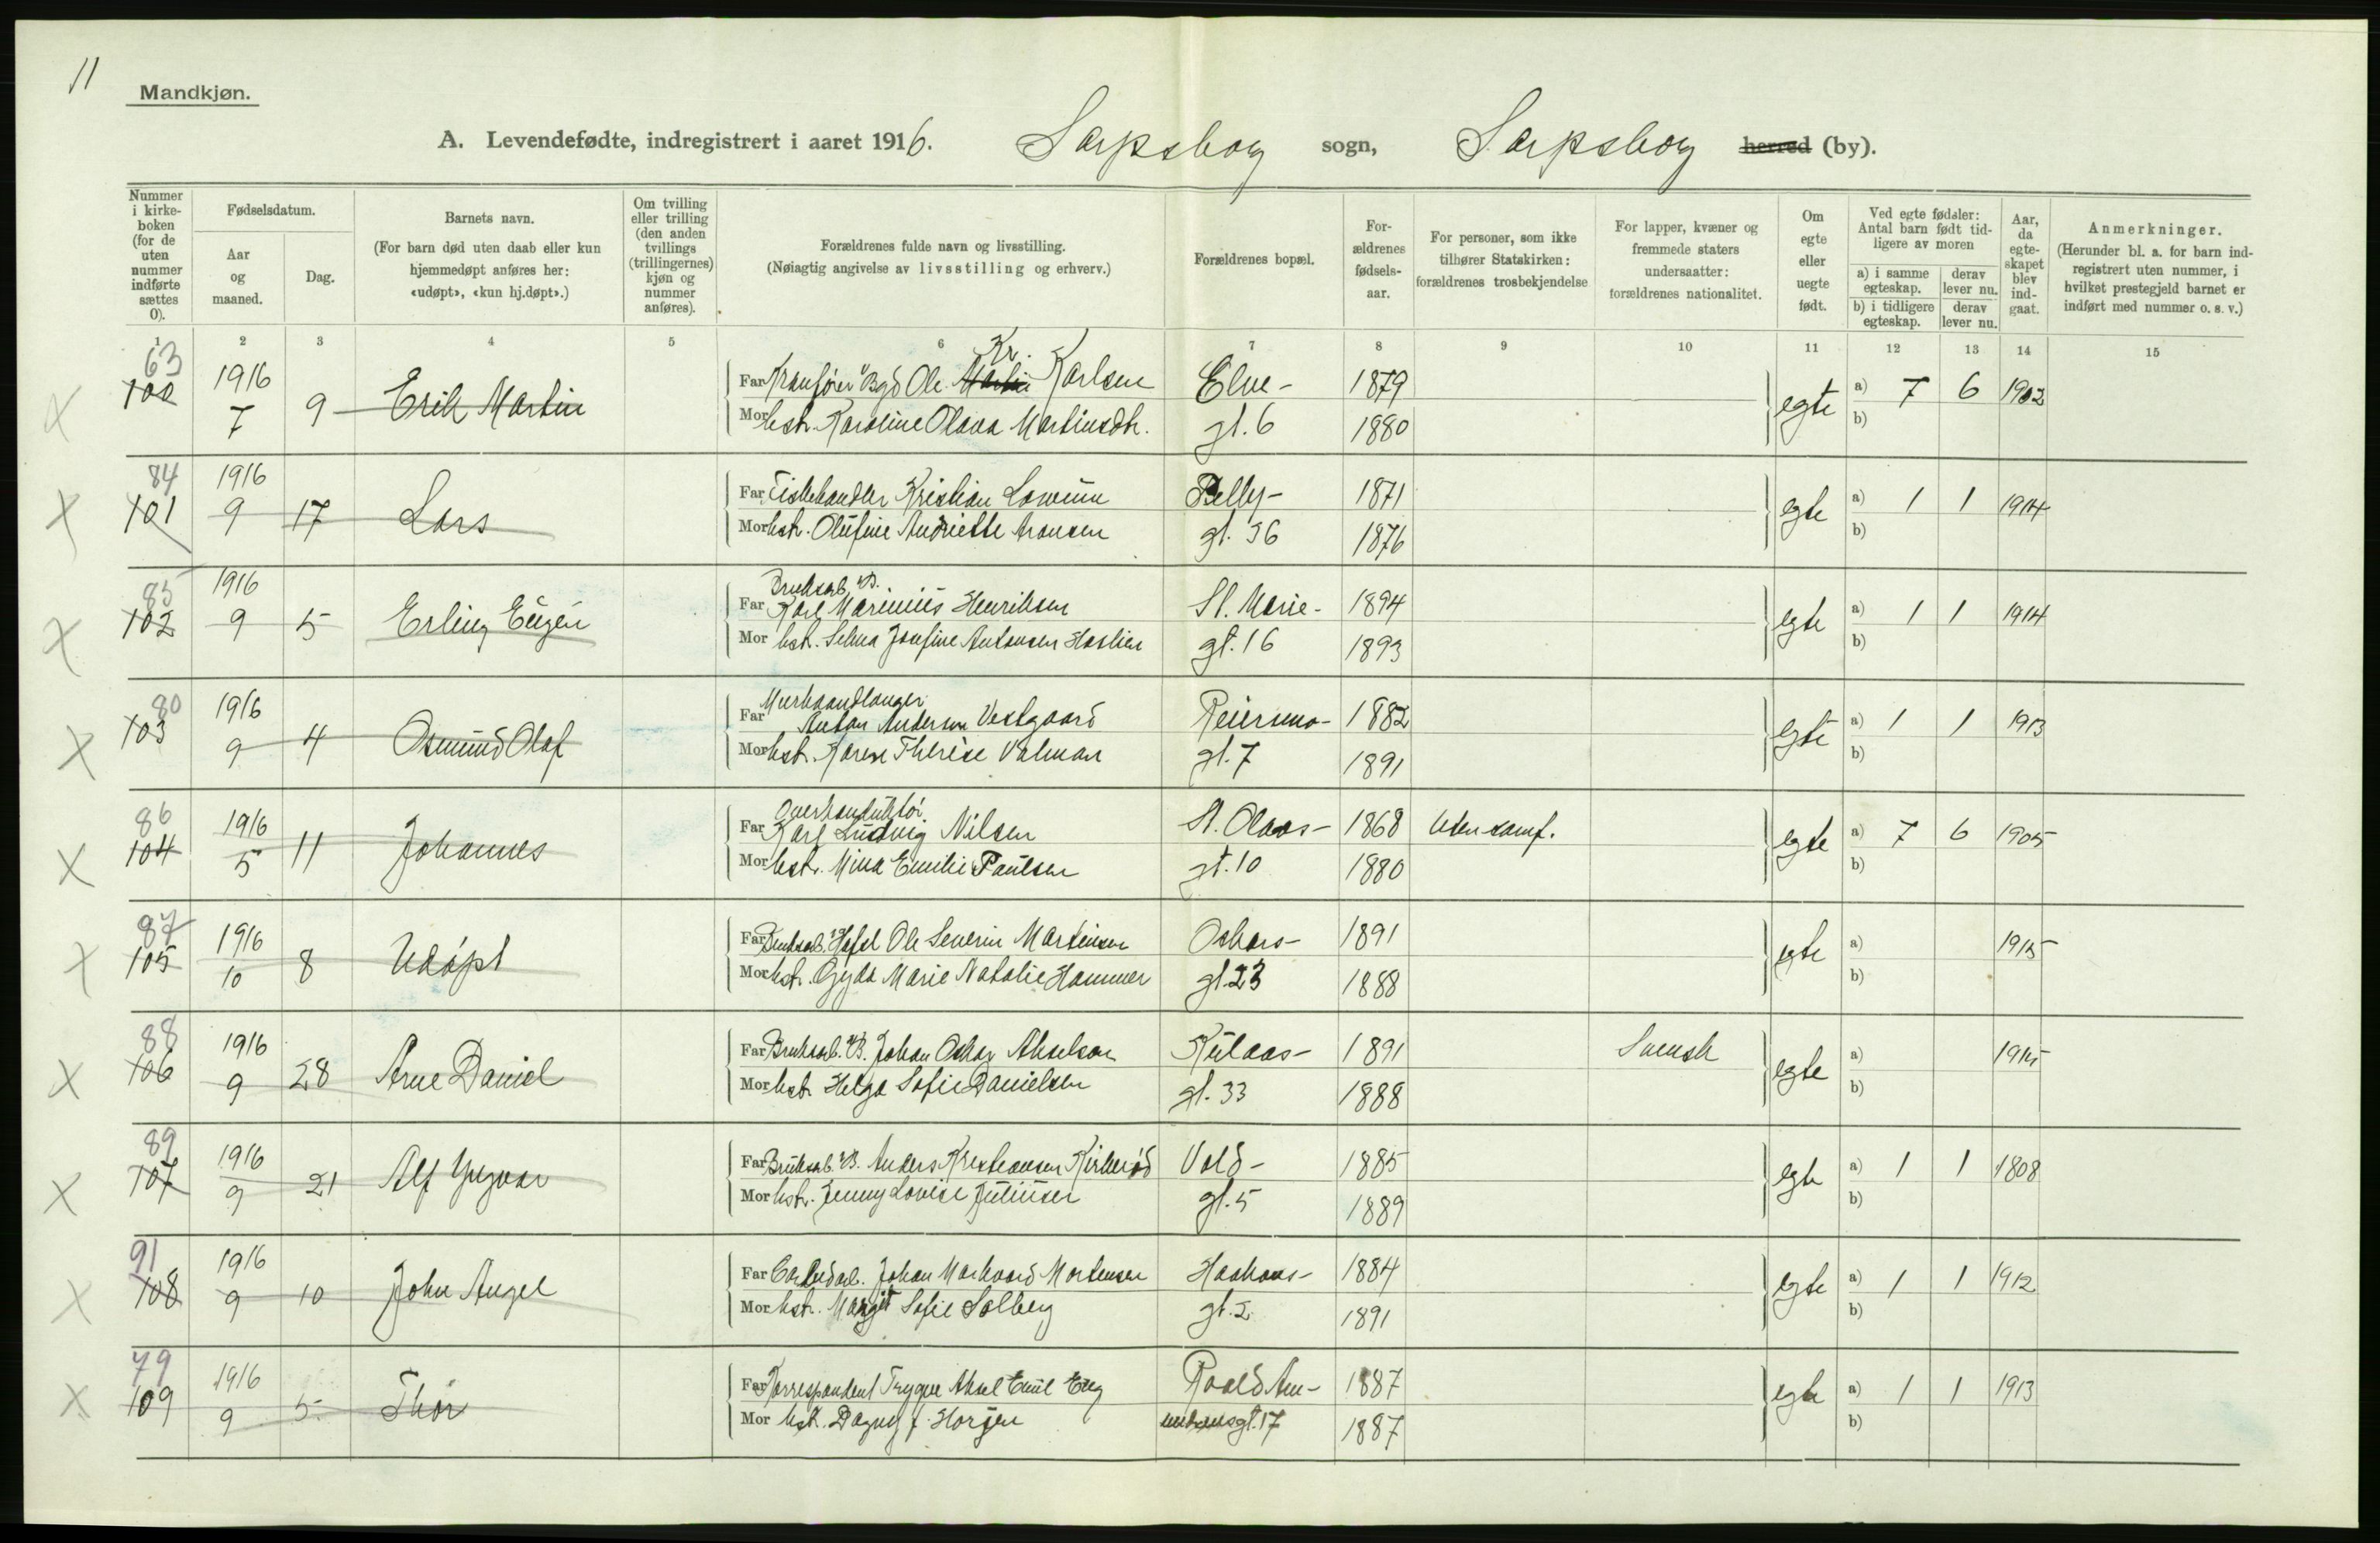 11
Mandkjøn.
A. Levendefødte, indregistrert i aaret 1916. Sarpsborg sogn, Sarpsborg herred (by).
Nummer i kirke- boken (for de uten nummer indførte sættes 0).
Fødselsdatum.
Aar og maaned.
Dag.
Barnets navn.
(For barn død uten daab eller kun hjemmedøpt anføres her: «udøpt», «kun hj.døpt».)
Om tvilling eller trilling (den anden tvillings (trillingernes) kjøn og nummer anføres).
Forældrenes fulde navn og livsstilling.
(Nøiagtig angivelse av livsstilling og erhverv.)
Forældrenes bopæl.
For- ældrenes fødsels- aar.
For personer, som ikke tilhører Statskirken: forældrenes trosbekjendelse
For lapper, kvæner og fremmede staters undersaatter: forældrenes nationalitet.
Om egte eller uegte født.
Ved egte fødsler: Antal barn født tid- ligere av moren
a) i samme egteskap. derav lever nu.
b) i tidligere egteskap. derav lever nu.
Aar, da egte- skapet blev ind- gaat.
Anmerkninger.
(Herunder bl. a. for barn ind- registrert uten nummer, i hvilket prestegjeld barnet er indført med nummer o. s. v.)
1 2 3 4 5 6 7 8 9 10 11 12 13 14 15
63 Kr.
100 1916 7 9 Erik Martin Far Kranfører Bgd Ole Martin Karlsen Elve- 1879 egte a) 7 6 1902
Mor hst. Karoline Olava Martinsdtr. gt. 6 1880 b)
84
101 1916 9 17 Lars Far Fiskehandler Kristian Lowum Pelly- 1871 egte a) 1 1 1914
Mor hst. Olufine Andriette Aronsen gt. 36 1876 b)
85 Bruksarb. B.
102 1916 9 5 Erling Eugen Far Karl Marinius Henriksen St. Marie- 1894 egte a) 1 1 1914
Mor hst. Selma Josefine Antonsen Haslien gt. 16 1893 b)
80 Murhaandlanger
103 1916 9 4 Osmund Olaf Far Anton Anderson Vestgaard Reiersmo- 1882 egte a) 1 1 1913
Mor hst. Karen Therese Valman gt. 7 1891 b)
86 Overkonduktør
104 1916 5 11 Johannes Far Karl Ludvig Nilsen St. Olavs- 1868 Uten samf. egte a) 7 6 1905
Mor hst. Mina Emilie Paulsen gt. 10 1880 b)
87
105 1916 10 8 Udøpt Far Bruksarb. Hafsl Ole Severin Martinsen Oskars- 1891 egte a) 1915
Mor hst. Gyda Marie Natalie Hammer gt. 23 1888 b)
88
106 1916 9 28 Arne Daniel Far Bruksarb. B. Johan Oskar Akselson Kulaas- 1891 Svensk egte a) 1915
Mor hst. Helga Sofie Danielsen gt. 33 1888 b)
89
107 1916 9 21 Alf Yngvar Far Bruksarb. B. Anders Kristiansen Kirkerød Vold- 1885 egte a) 1 1 1808
Mor hst. Jenny Lovise Juliusen gt. 5 1889 b)
91
108 1916 9 10 John Angel Far Carbidarb. Johan Markvard Mortensen Haakons- 1884 egte a) 1 1 1912
Mor hst. Margit Sofie Solberg gt. 2 1891 b)
79
109 1916 9 5 Thor Far Korrespondent Trygve Aksel Emil Eng Roald Am- 1887 egte a) 1 1 1913
Mor hst. Dagny f. Horgen undsensgt. 17 1887 b)